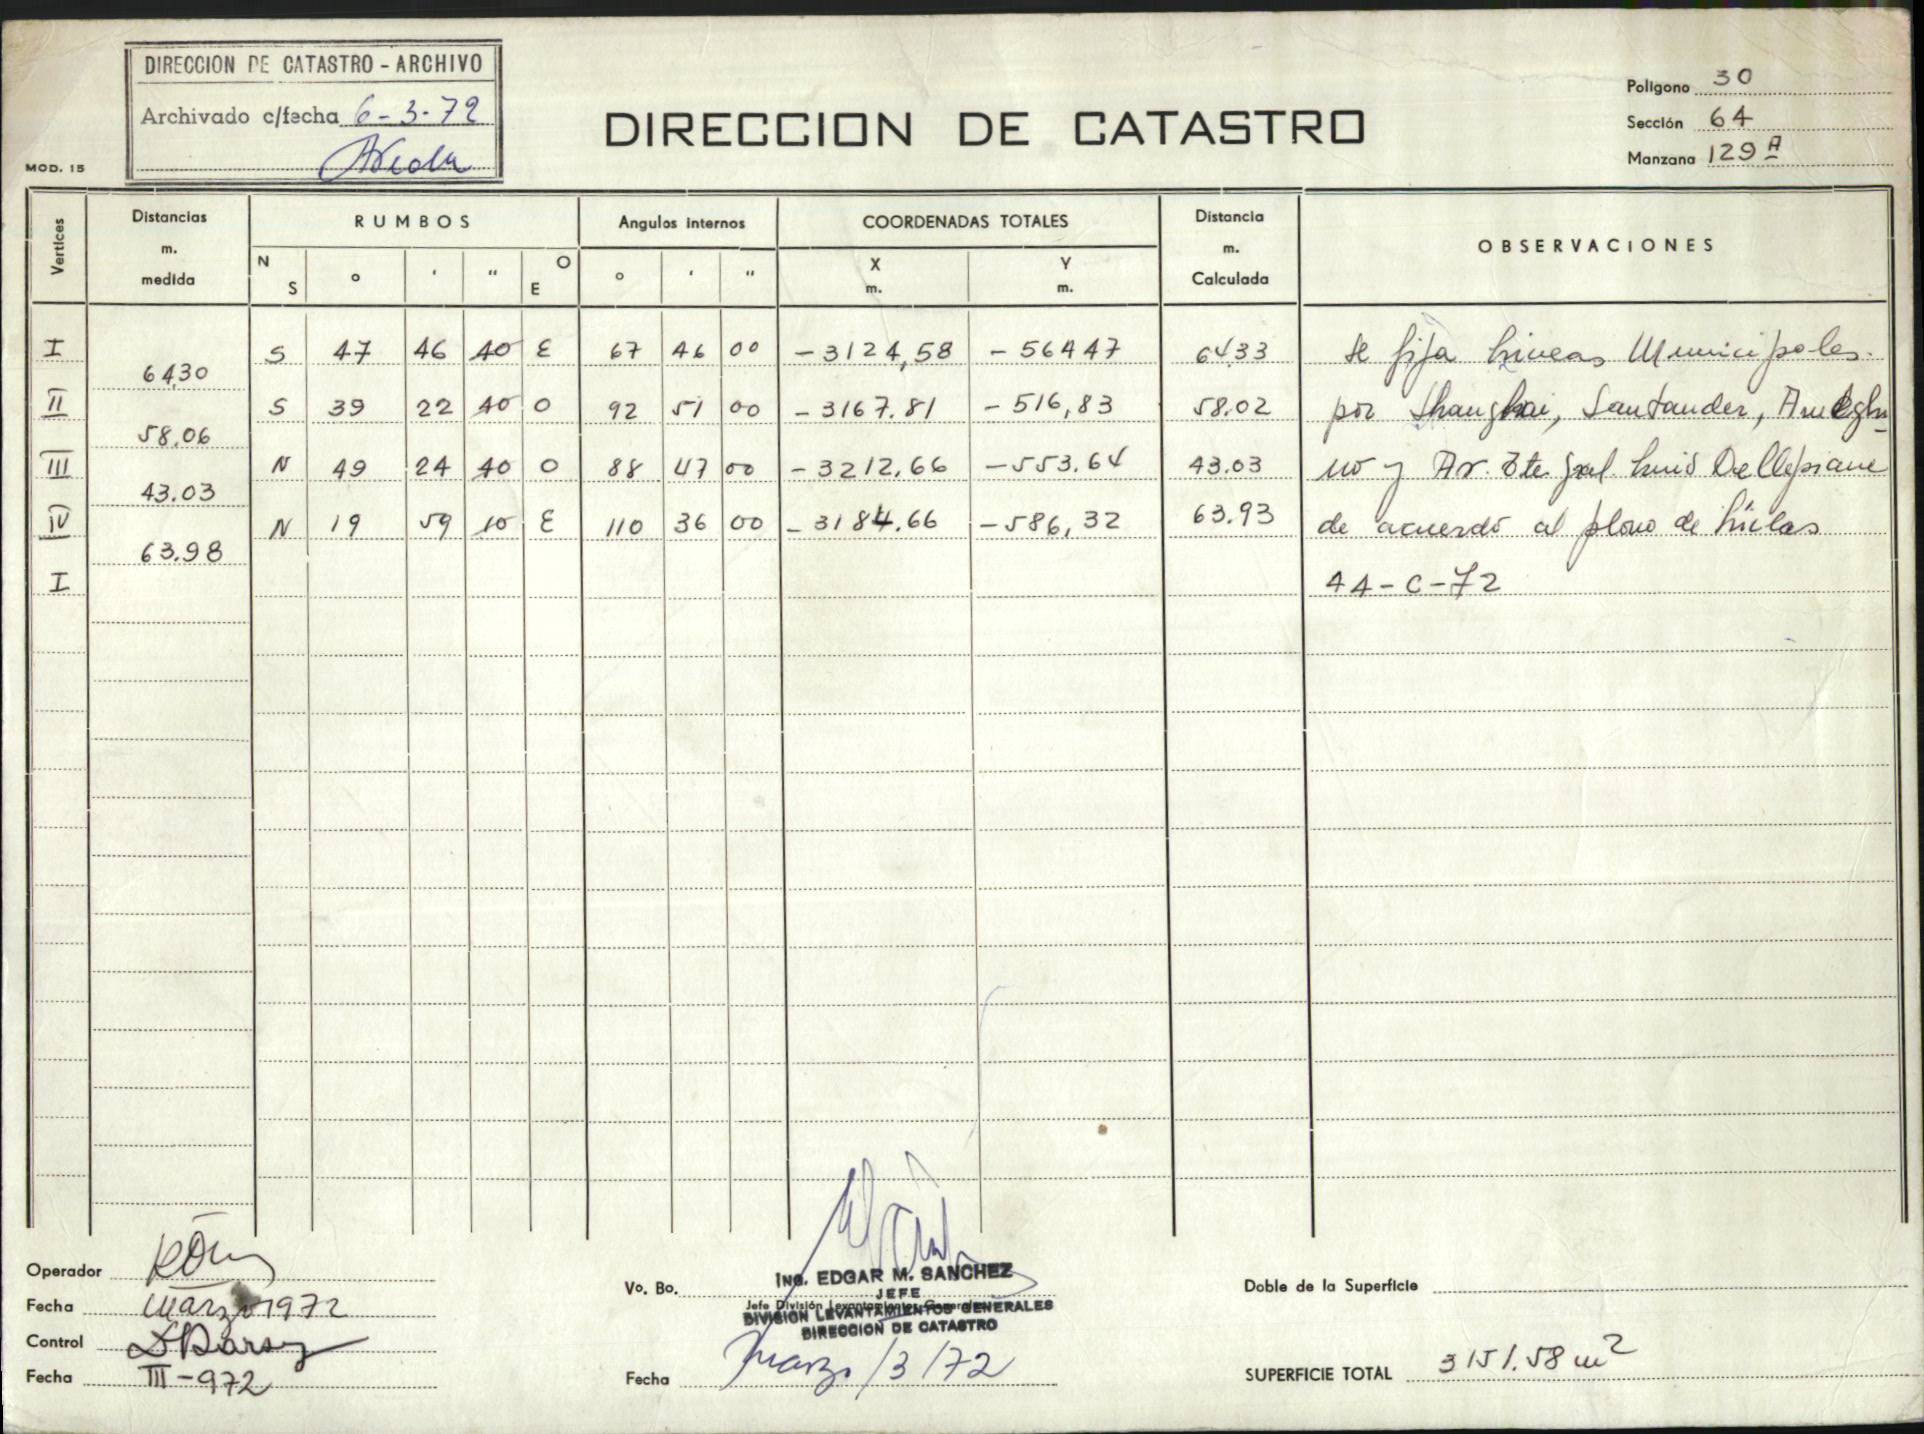 DIRECCION DE CATASTRO - ARCHIVO
Archivado c/fecha 6-3-72
MOD. 15
DIRECCION DE CATASTRO
Polígono 30
Sección 64
Manzana 129 A
Vertices Distancias m. medida RUMBOS Angulos internos COORDENADAS TOTALES Distancia m. Calculada OBSERVACIONES
N S ° ' " O E ° ' " X m. Y m.
I S 47 46 40 E 67 46 00 -3124,58 -564 47 64.33 se fija Lineas Municipales.
64.30
II S 39 22 40 O 92 51 00 -3167.81 -516,83 58.02 por Shanghai, Santander, Ameghi
58.06
III N 49 24 40 O 88 47 00 -3212.66 -553.64 43.03 no y Av. Tte Gral. Luis Dellepiane
43.03
IV N 19 59 10 E 110 36 00 -3184.66 -586,32 63.93 de acuerdo al plano de
63.98
I 44-C-72
Operador
Fecha marzo 1972
Control
Fecha III-972
Vo. Bo.
ING. EDGAR M. SANCHEZ
JEFE
Jefe División Levantamientos Generales
DIVISION LEVANTAMIENTOS GENERALES
DIRECCION DE CATASTRO
Fecha marzo/3/72
Doble de la Superficie
SUPERFICIE TOTAL 3151.58 m2